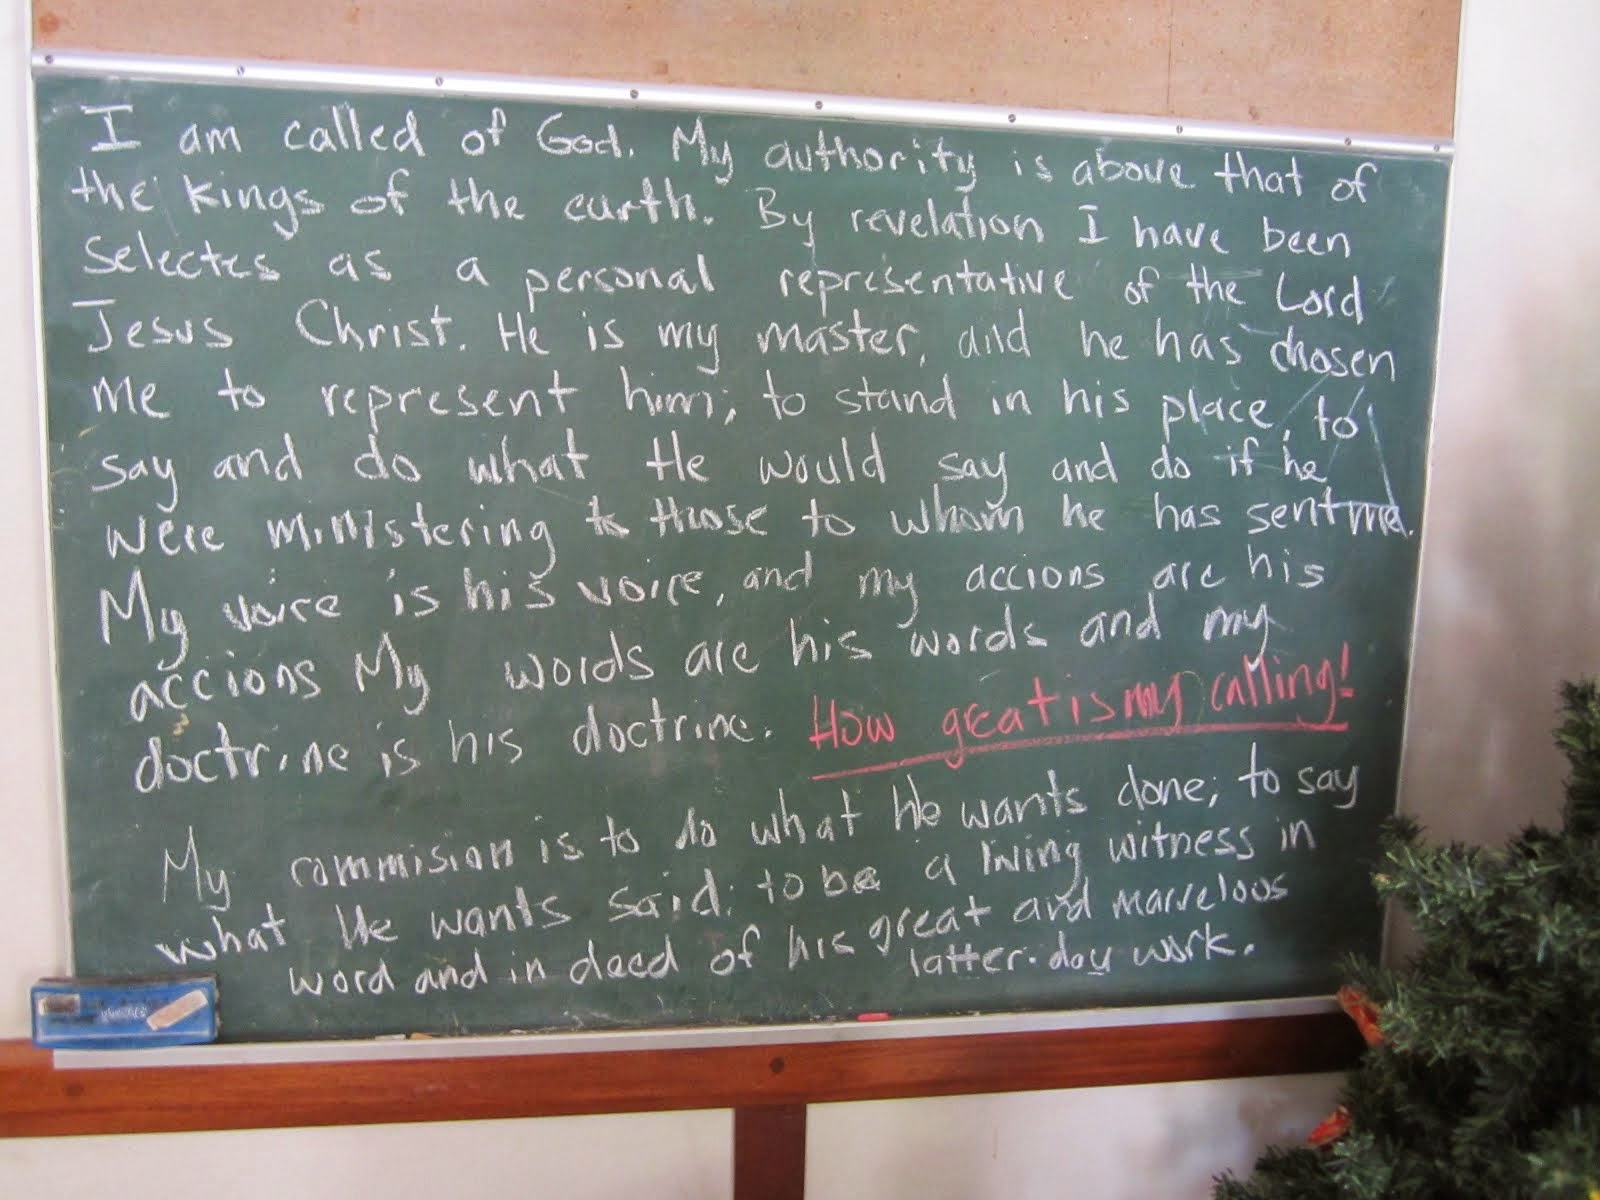 I am called of God. My authority is above that of
the kings of the earth. By revelation I have been
selectes as a personal representative of the Lord
Jesus Christ. He is my master, and he has chosen
me to represent him; to stand in his place, to
say and do what He would say and do if he
were ministering to those to whom he has sent me.
My voice is his voice, and my accions are his
accions My words are his words and my
doctrine is his doctrine. How great is my calling!
My commision is to do what He wants done; to say
what He wants said; to be a living witness in
word and in deed of his great and marvelous
latter-day work.